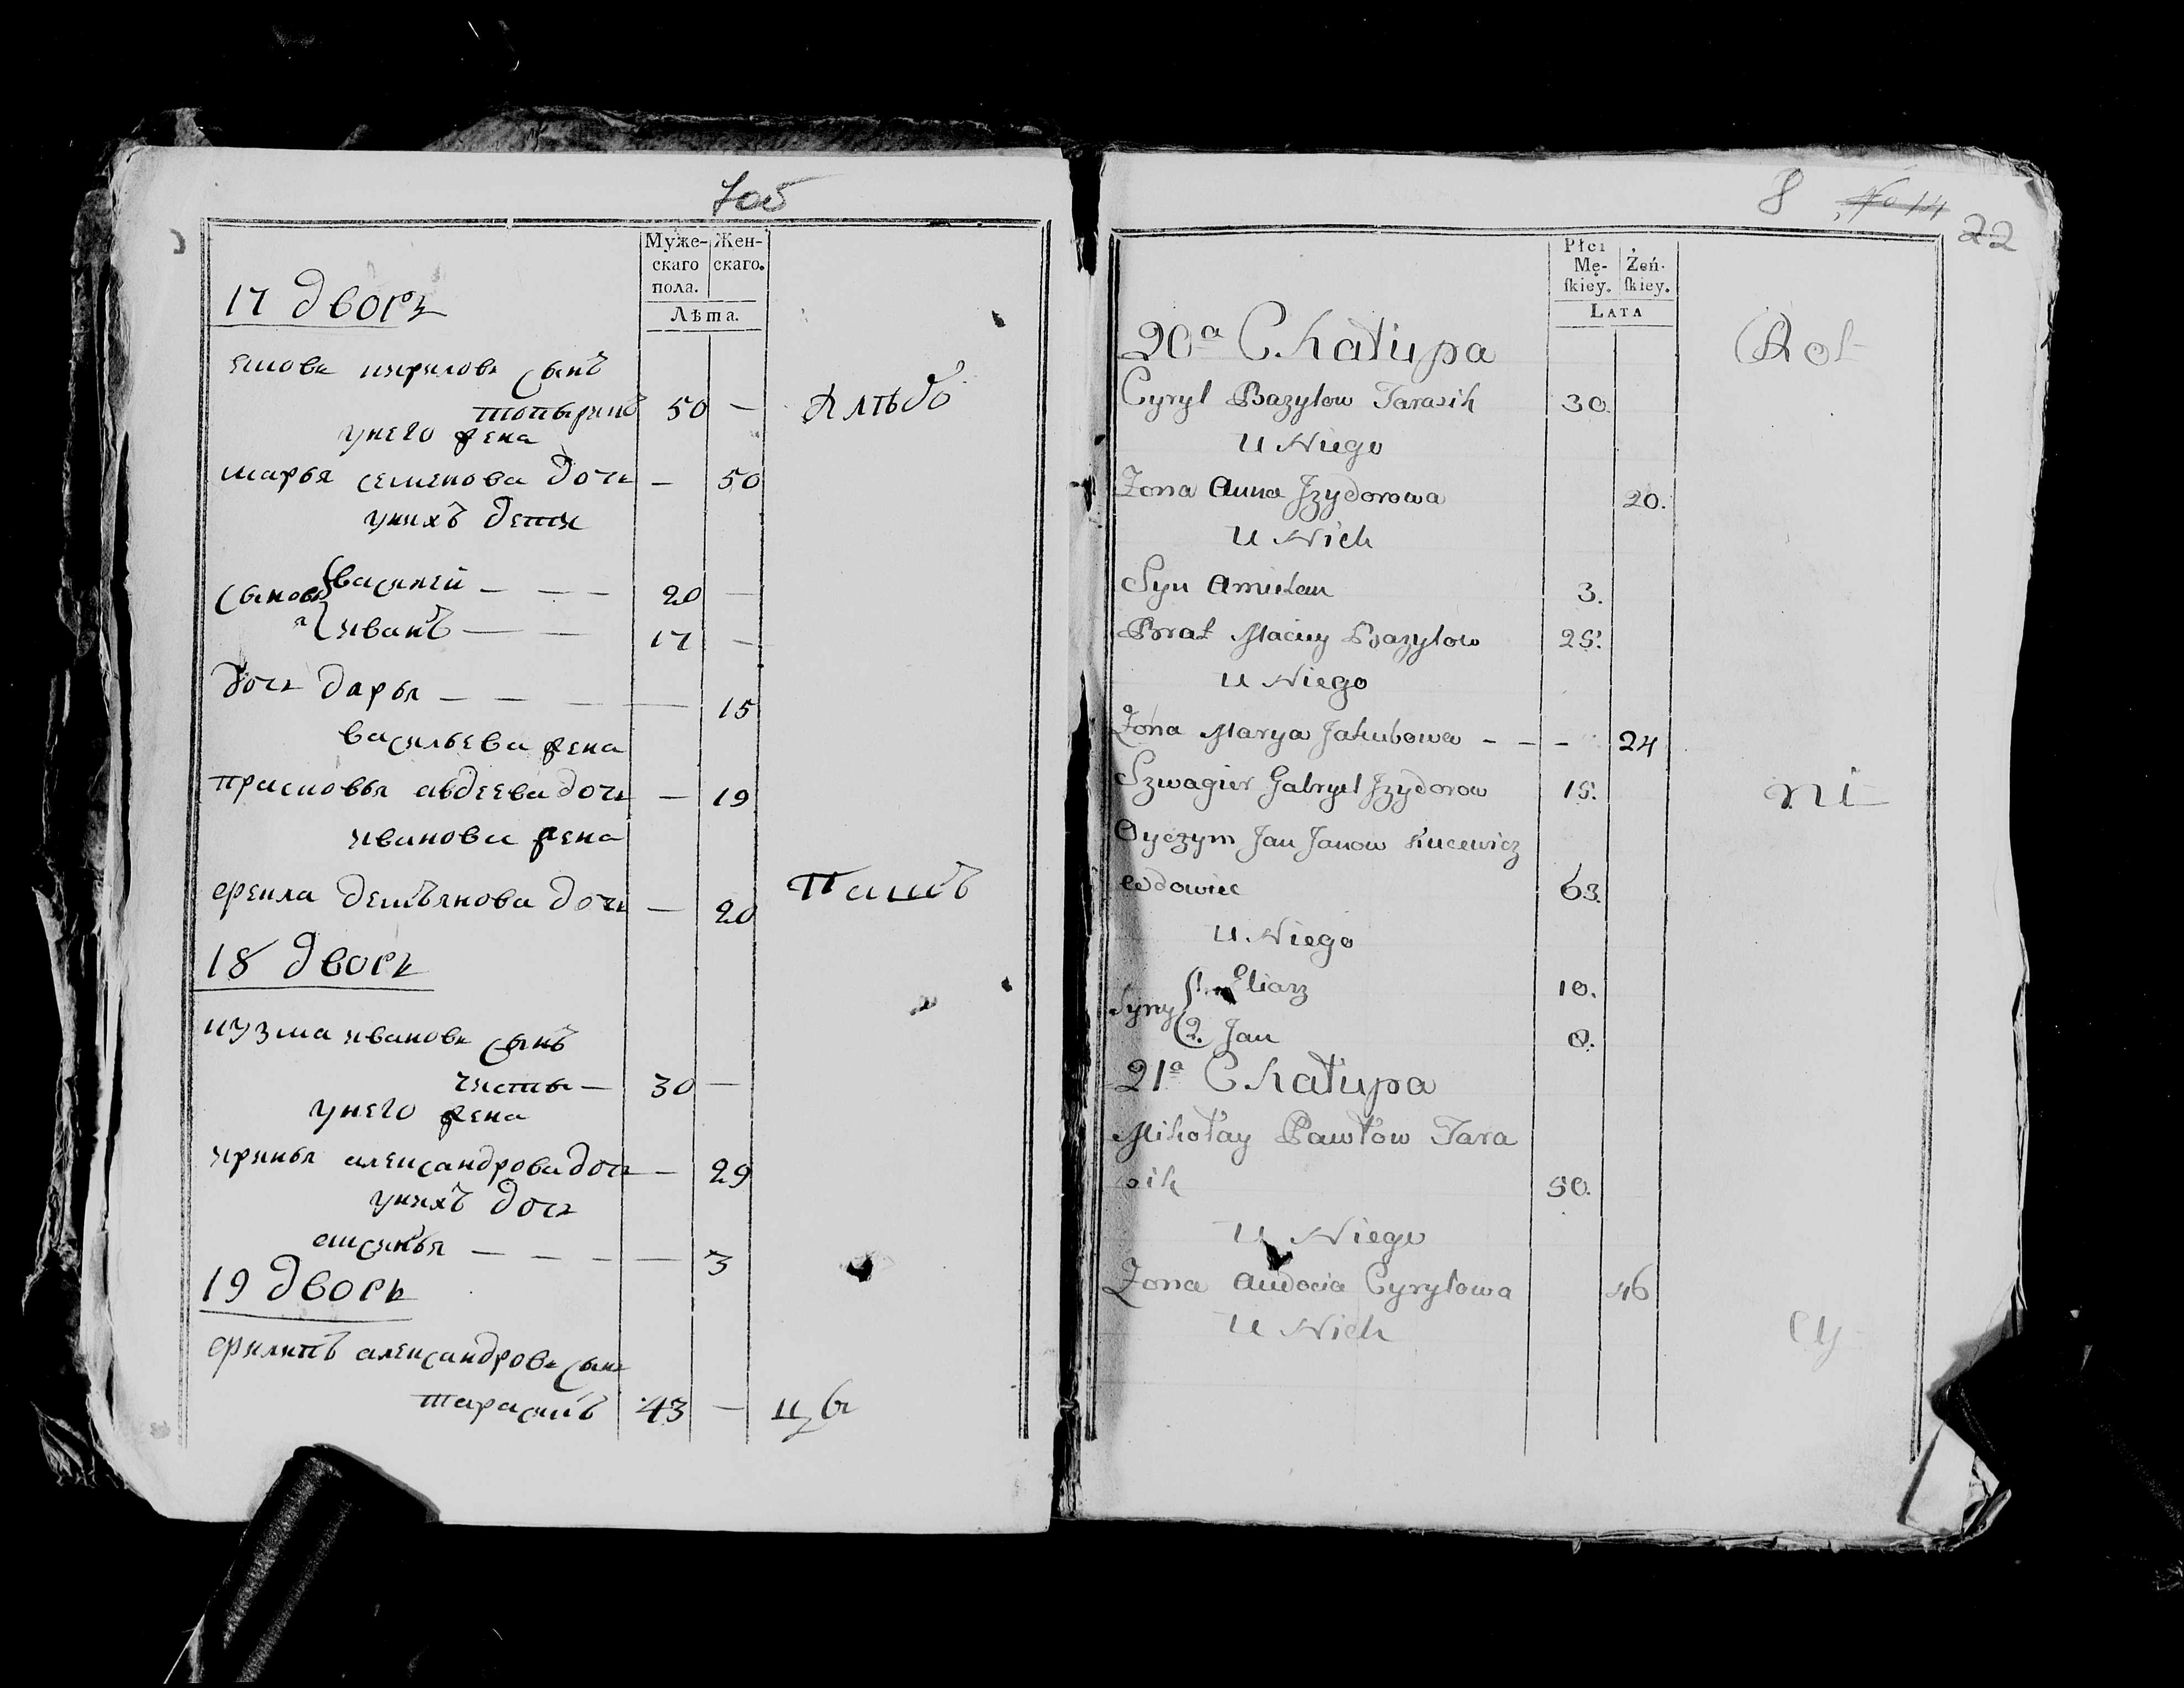 7об
Муже- Жен-
скаго скаго.
пола.
Лѣта.
17 дворъ
яковъ кириловъ сынъ
50 —
унего жена
марья семенова дочь — 50
унихъ дети
сыновья василей — — — 20 —
иванъ — — 17 —
дочь дарья — — — — 15
васильева жена
прасковья авдеева дочь — 19
иванова жена
фекла демьянова дочь — 20
18 дворъ
кузма ивановъ сынъ
30 —
унего жена
александрова дочь — 29
унихъ дочь
аксинья — — — — 3
19 дворъ
филипъ александровъ сынъ
тарасикъ 43 —
8 No 14
22
Płci
Mę- Żeń-
ſkiey. ſkiey.
LATA
20a Chałupa
Cyryl Bazylow Tarasik 30.
U Niego
Zona Anna Jzydorowa 20.
U Nich
Syn 3.
Brat Maciey Bazylow 25.
U Niego
Żona Marya Jakubowa – – – 24
Szwagier Gabryel Jzydorow 15.
Oyczym Jan Janow Kucewicz
wdowiec 63.
U Niego
Syny 1. Eliasz 10.
2. Jan 8.
21a Chałupa
Mikołay Pawłow Tara
sik 50.
U Niego
Zona Audocia Cyryłowa 46
U Nich
ni